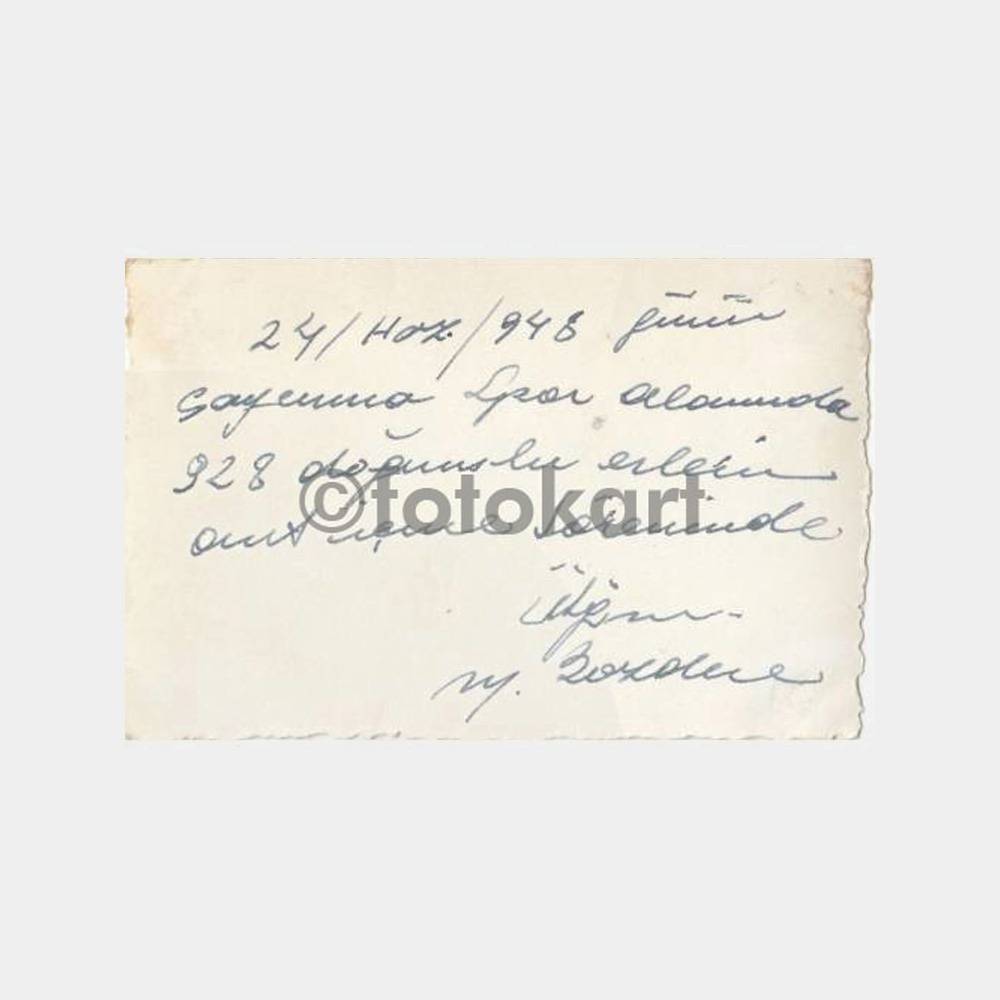 24/Haz./948 günü
Spor alanında
928 doğumlu erlerin
ant içme töreninde
M. Bozdere
©fotokart